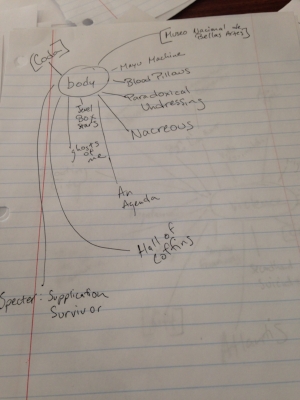 [Museo Nacional de
Bellas Artes]
[Coda]
body
Machine
Blood Pillows
Paradoxical
Undressing
Box
Nacreous
ghosts
of
me
An
Agenda
Hall of
Coffins
Specter: Supplication
Survivor